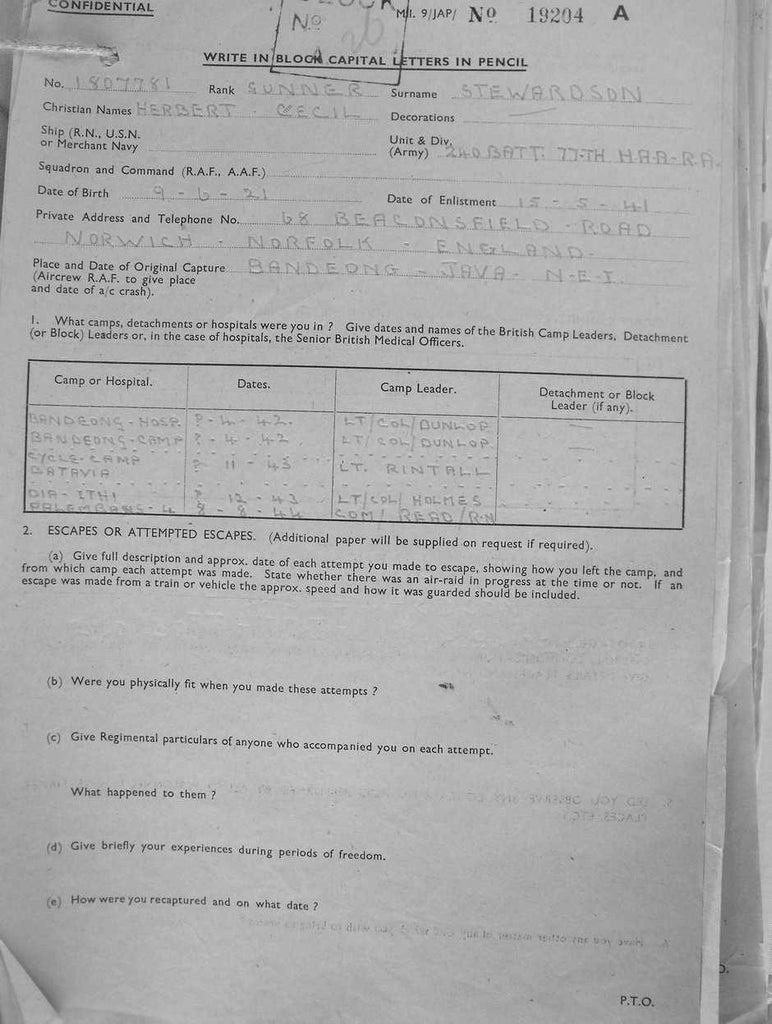 CONFIDENTIAL
No
M.I. 9/JAP/ No 19204 A
WRITE IN BLOCK CAPITAL LETTERS IN PENCIL
No. 1807781 Rank GUNNER Surname STEWARDSON
Christian Names HERBERT - CECIL Decorations
Ship (R.N., U.S.N.
or Merchant Navy
Unit & Div.
(Army) 240 BATT. 77-TH H-A-A-R.A.
Squadron and Command (R.A.F., A.A.F.)
Date of Birth 9 - 6 - 21 Date of Enlistment 15 - 5 - 41
Private Address and Telephone No. 68 BEACONSFIELD - ROAD
NORWICH - NORFOLK - ENGLAND-
Place and Date of Original Capture BANDEONG - JAVA - N-E-I.
(Aircrew R.A.F. to give place
and date of a/c crash).
1. What camps, detachments or hospitals were you in ? Give dates and names of the British Camp Leaders, Detachment
(or Block) Leaders or, in the case of hospitals, the Senior British Medical Officers.
Camp or Hospital. Dates. Camp Leader. Detachment or Block
Leader (if any).
BANDEONG - HOSP. ? - 4 - 42. LT/COL/DUNLOP
BANDEONG - CAMP ? - 4 - 42 LT/COL/DUNLOP.
CYCLE-CAMP
BATAVIA ? 11 - 43 LT. RINTALL
? 12 - 43 LT/COL/ HOLMES
PALEMBANG - 4 8 - 44 COM/ READ/R-N
2. ESCAPES OR ATTEMPTED ESCAPES. (Additional paper will be supplied on request if required).
(a) Give full description and approx. date of each attempt you made to escape, showing how you left the camp, and
from which camp each attempt was made. State whether there was an air-raid in progress at the time or not. If an
escape was made from a train or vehicle the approx. speed and how it was guarded should be included.
(b) Were you physically fit when you made these attempts ?
(c) Give Regimental particulars of anyone who accompanied you on each attempt.
What happened to them ?
(d) Give briefly your experiences during periods of freedom.
(e) How were you recaptured and on what date ?
P.T.O.